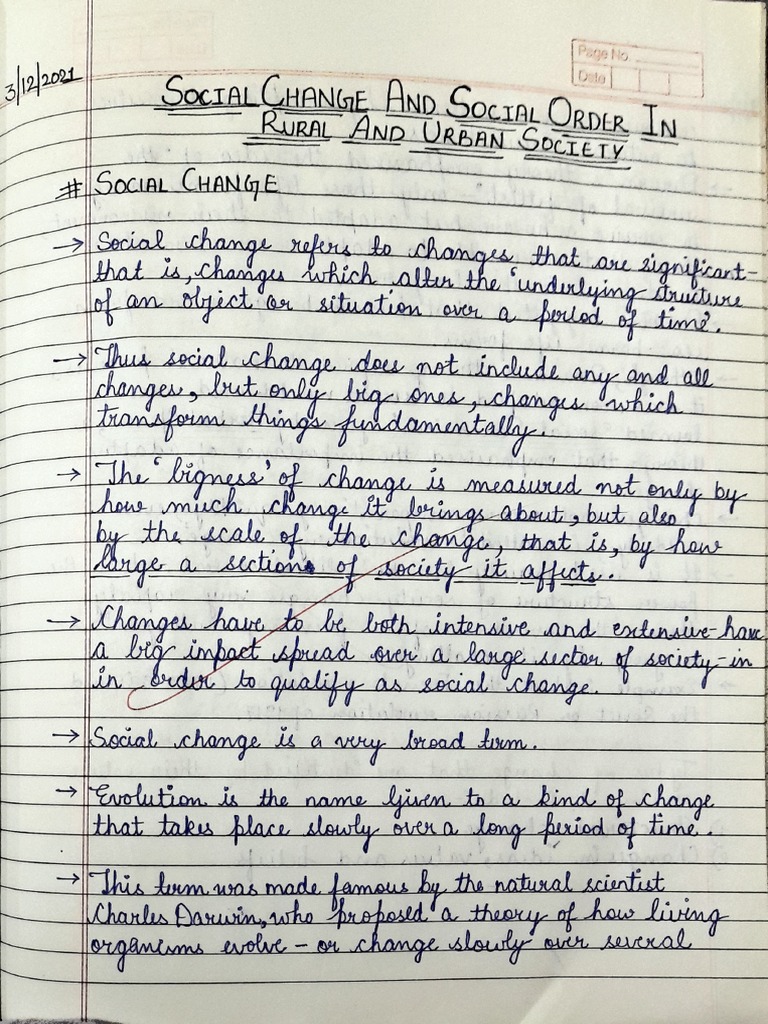 Page No.
Date
3/12/2021
SOCIAL CHANGE AND SOCIAL ORDER IN
RURAL AND URBAN SOCIETY
# SOCIAL CHANGE
→ Social change refers to changes that are significant-
that is, changes which alter the 'underlying structure
of an object or situation over a period of time'.
→ Thus social change does not include any and all
changes, but only big ones, changes which
transform things fundamentally.
→ The 'bigness' of change is measured not only by
how much change it brings about, but also
by the scale of the change, that is, by how
large a section of society it affects.
→ Changes have to be both intensive and extensive-have
a big impact spread over a large sector of society-in
in order to qualify as social change.
→ Social change is a very broad term.
→ Evolution is the name given to a kind of change
that takes place slowly over a long period of time.
→ This term was made famous by the natural scientist
Charles Darwin, who proposed a theory of how living
organisms evolve - or change slowly over several